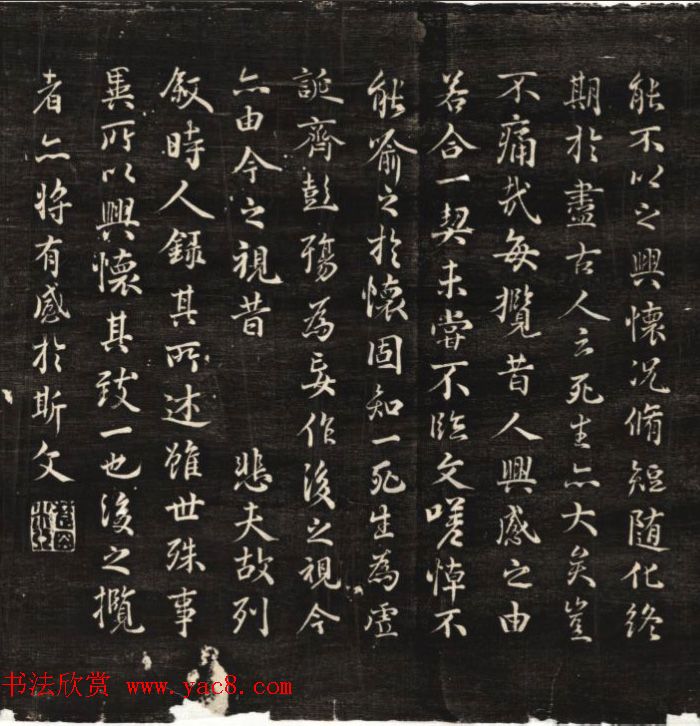 能不以之興懷况脩短随化終
期於盡古人云死生亦大矣豈
不痛哉每攬昔人興感之由
若合一契未嘗不臨文嗟悼不
能喻之於懷固知一死生為虛
誕齊彭殤為妄作後之視今
亦由今之視昔 悲夫故列
叙時人錄其所述雖世殊事
異所以興懷其致一也後之攬
者亦將有感於斯文
书法欣赏 www.yac8.com